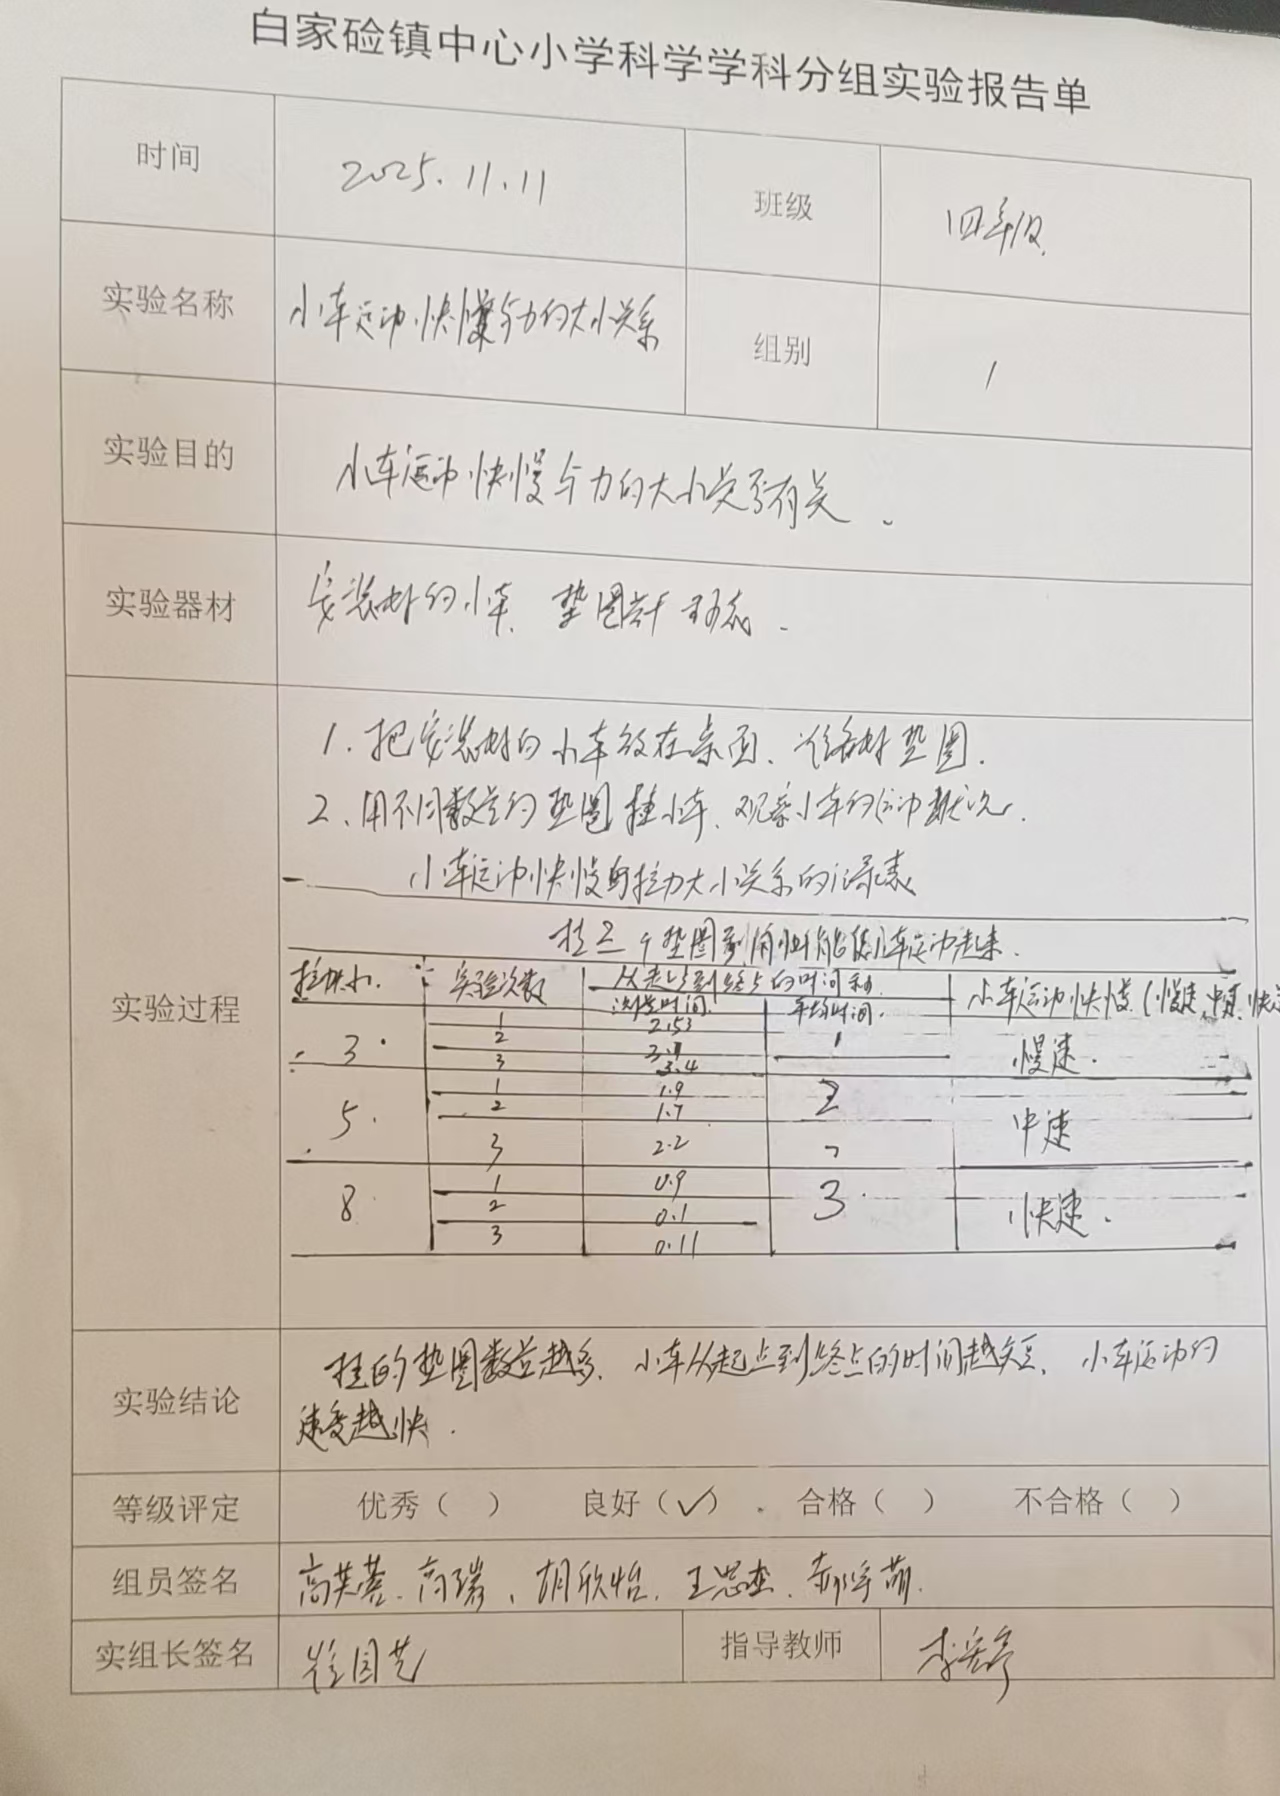 白家硷镇中心小学科学学科分组实验报告单
时间 2025.11.11 班级 四年级
实验名称 小车运动快慢与力的大小关系 组别 1
实验目的 小车运动快慢与力的大小关系有关.
实验器材 安装好的小车、垫圈
实验过程
1.把安装好的小车放在桌面、准备好垫圈.
2、用不同数量的垫圈挂小车、观察小车的运动状况.
小车运动快慢与拉力大小关系的记录表
挂三个垫圈刚刚能使小车运动起来.
实验次数 从起点到终点的时间 小车运动快慢(慢速、中速、快速
测量时间 平均时间.
3 1 2.53 1 慢速.
2
3 3.4
5. 1 1.9 2 中速
2 1.7
3 2.2
8 1 0.9 3 快速.
2 0.1
3 0.11
实验结论 挂的垫圈数量越多、小车从起点到终点的时间越短、小车运动的
速度越快.
等级评定 优秀( ) 良好(✓) 合格( ) 不合格( )
组员签名 高芙蓉、高瑞、胡欣怡、王思杰、
实组长签名 指导教师